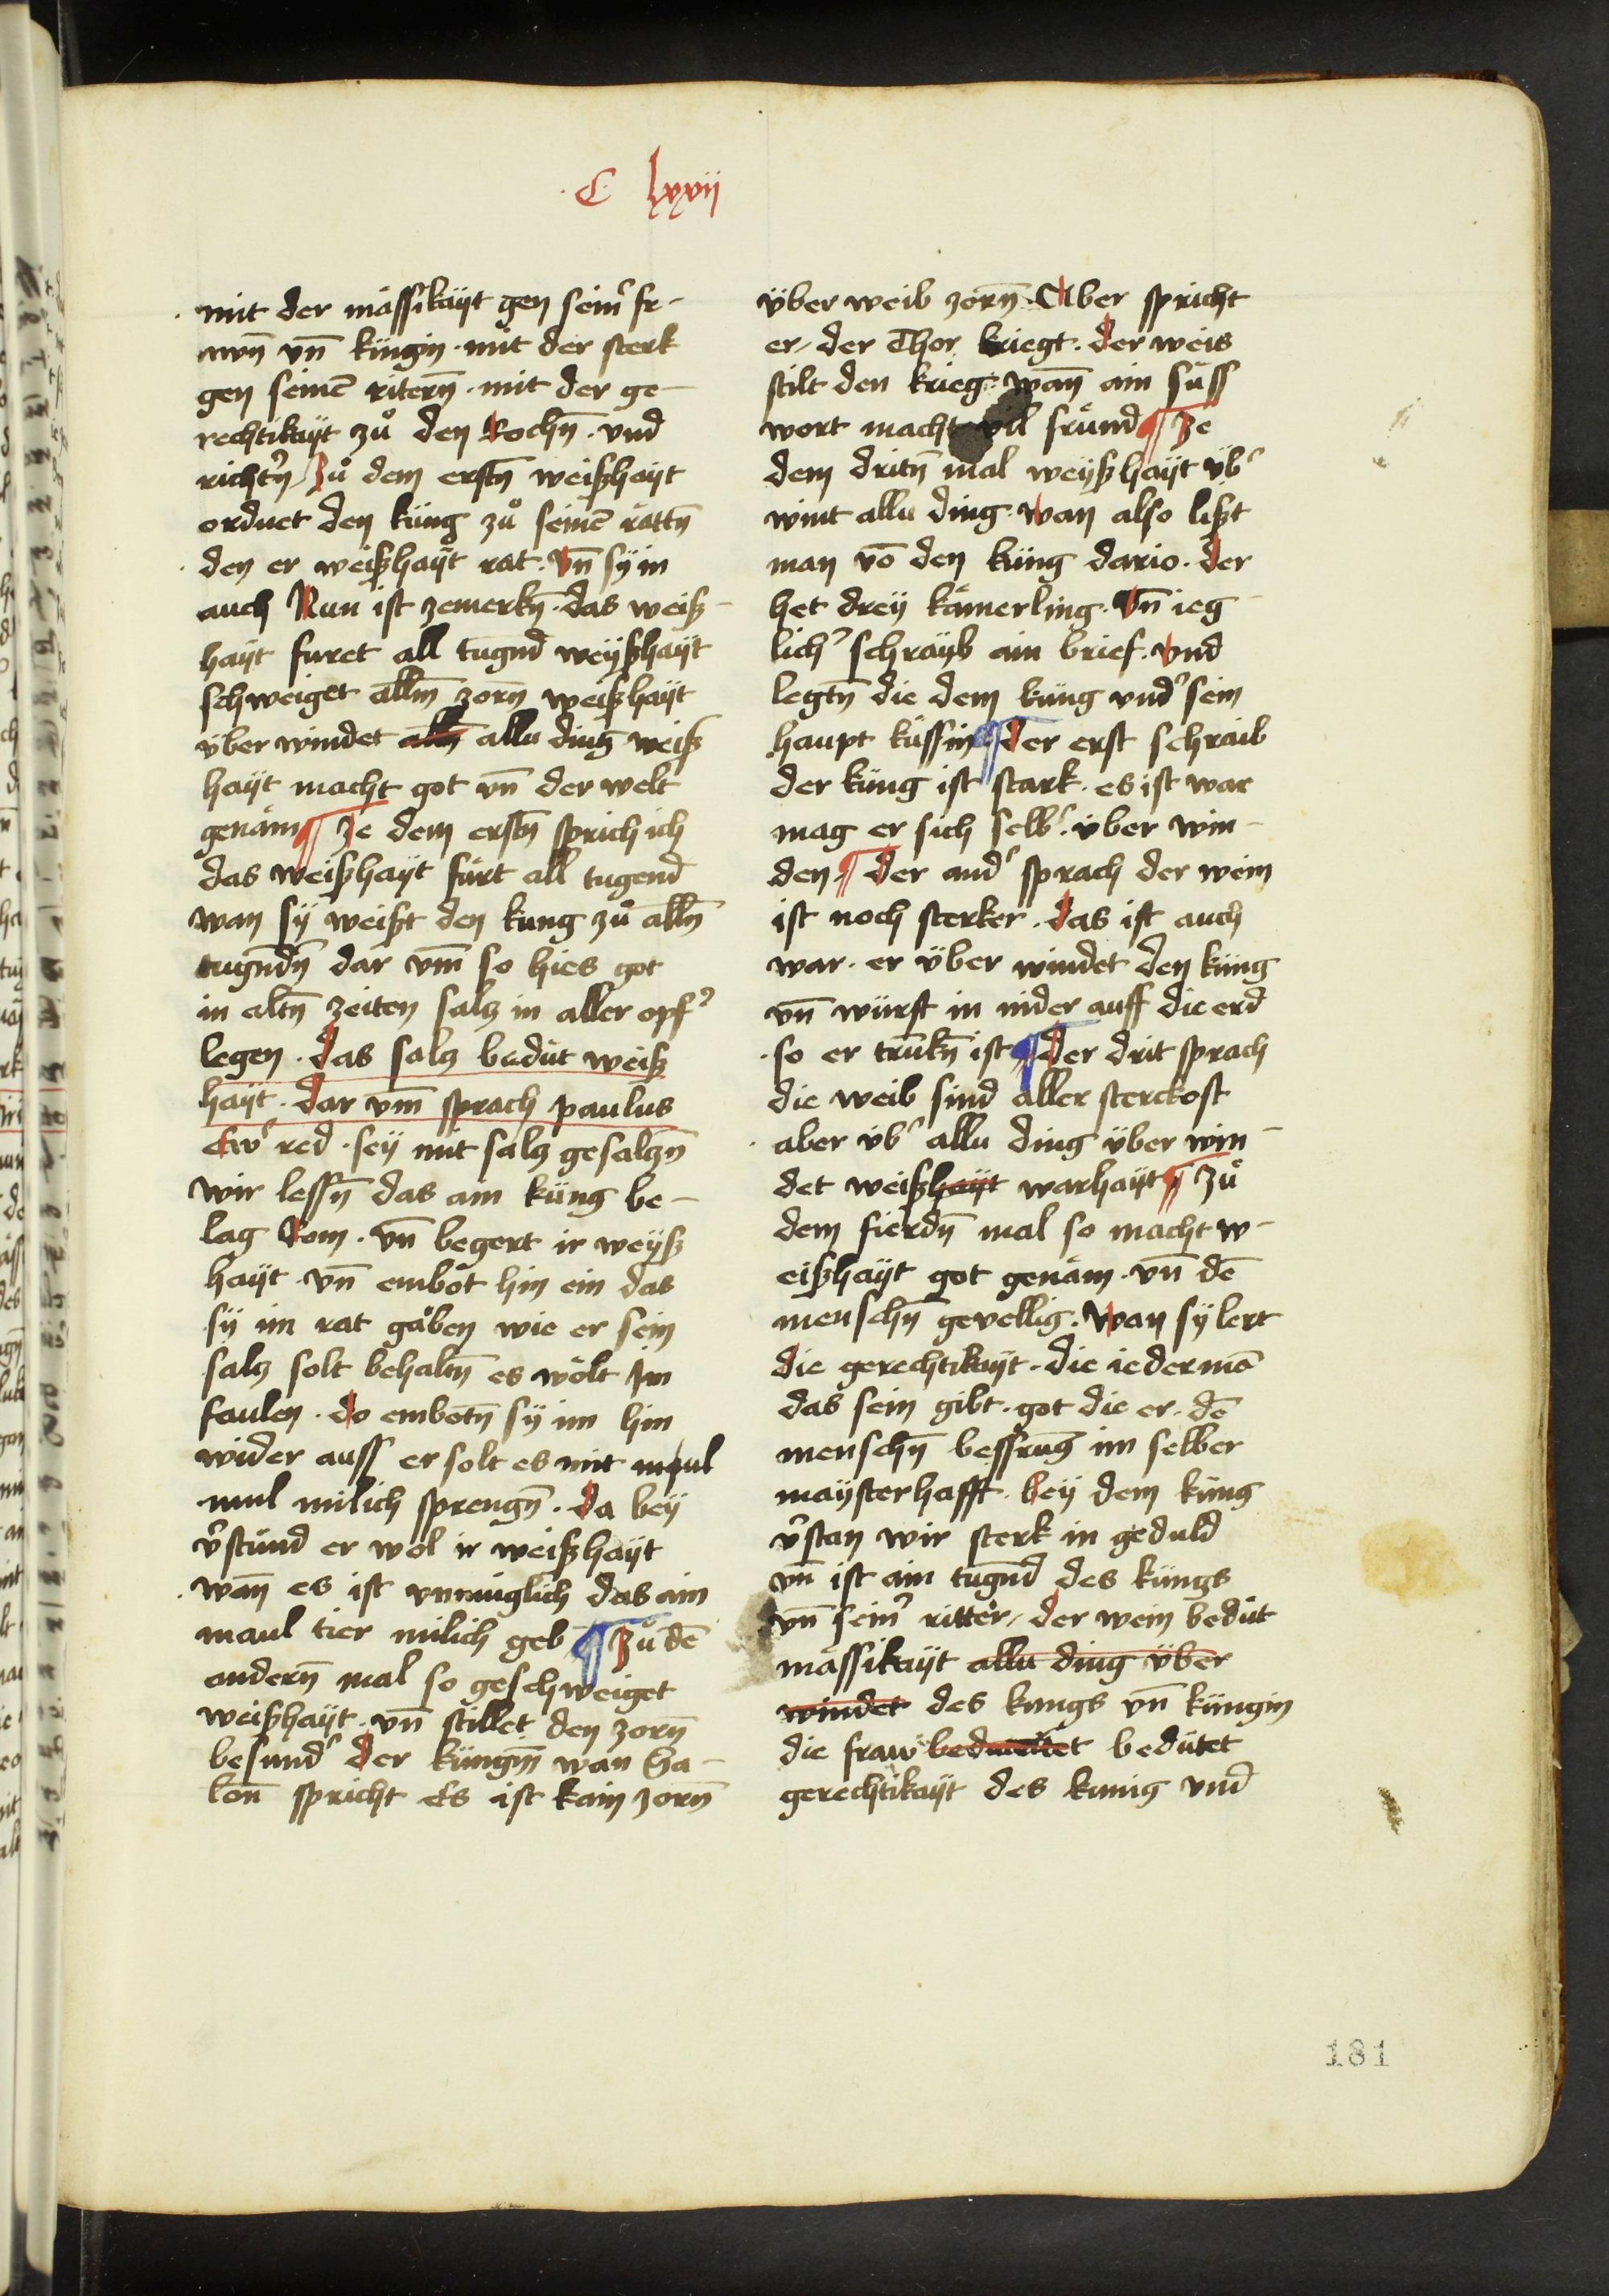 C lxxvij
mit der mässikäyt gen seinꝰ fr-
awn̄ vn̄ küngin · mit der sterk
gen seinē ritern̄ · mit der ge-
rechtikäyt zuͦ den Rochn̄ · vnd
richtꝰn zuͦ dem erstn̄ weißhäyt
orduet den küng zuͦ seinē rättn̄
den er weißhäyt rat · Vn̄ sÿ in
auch Nun ist zemerkn̄ · das weiß-
häyt furet all tugnd weyßhäyt
schweiget allm̄ zorn̄ weißhäyt
über windet alln̄ allu ding weiß
häyt macht got vn̄ der welt
genäm ¶ Ze dem erstn̄ sprich ich
das weißhäyt fürt all tugend
wan sÿ weißt den kung zuͦ alln̄
tugndn̄ dar vm̄ so hies got
in altn̄ zeiten salz in aller opfꝰ
legen · Das salz bedüt weiß
häyt · Dar vm̄ sprach paulus
Ewꝰ red · seÿ mit salz gesalzn̄
wir lessn̄ das ain küng be-
lag Rom · vn̄ begert ir weyß
häyt · vn̄ embot hin ein das
sÿ im rat gäben wie er sein
salz solt behaltn̄ es wölt Im
faulen · do embotn̄ sÿ im hin
wider auss er solt es mit maul
mul milich sprengn̄ · Da beÿ
vꝰstünd er wol ir weißhäyt
wan̄ es ist vnmüglich das ain
maul tier milich geb ¶ Zuͦ dē
andern̄ mal so geschweiget
weißhäyt · vn̄ stillet den zorn̄
besundꝰ Der küngin̄ wan Sa-
lon̄ spricht Es ist kain zorn̄
über weib zorn̄ · Aber spricht
er / der Thor kriegt · Der weis
stilt den krieg · wan̄ ain süss
wort macht vil fründ ¶ Ze
dem dritn̄ mal weyßhäyt übꝰ
wint allu ding · Wan also lißt
man vō den küng dario · Der
het dreÿ kämerling · Vn̄ ieg-
lichꝰ schrayb ain brief · Vnd
legtn̄ die dem küng vndꝰ sein
haupt küssin ¶ Der erst schraib
der küng ist stark · es ist war
mag er sich selbꝰ · über win-
den ¶ Der andꝰ sprach der wein
ist noch sterker · Das ist auch
war · er über windet den küng
vn̄ würft in nider auff die erd
so er trukn̄ ist ¶ Der drit sprach
die weib sind aller sterckost
aber übꝰ allu ding über win-
det weißhäyt warhäyt ¶ Zuͦ
dem fierdn̄ mal so macht w-
eißhäyt got genäm · vn̄ dē
menschn̄ gevellig · Wan sÿ lert
Die gerechtikäyt · die iedermā
das sein gibt · got die er · dē
menschn̄ bessrūg im selber
maÿsterhafft · beÿ dem küng
vꝰstan wir sterk in geduld
vn̄ ist ain tugnd des küngs
vn̄ seinꝰ ritter / Der wein bedüt
mässikäyt allu ding über
windet des kungs vn̄ küngin
die fraw bedütet
gerechtikäyt des kunig vnd
181